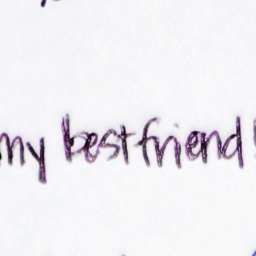 my best friend!